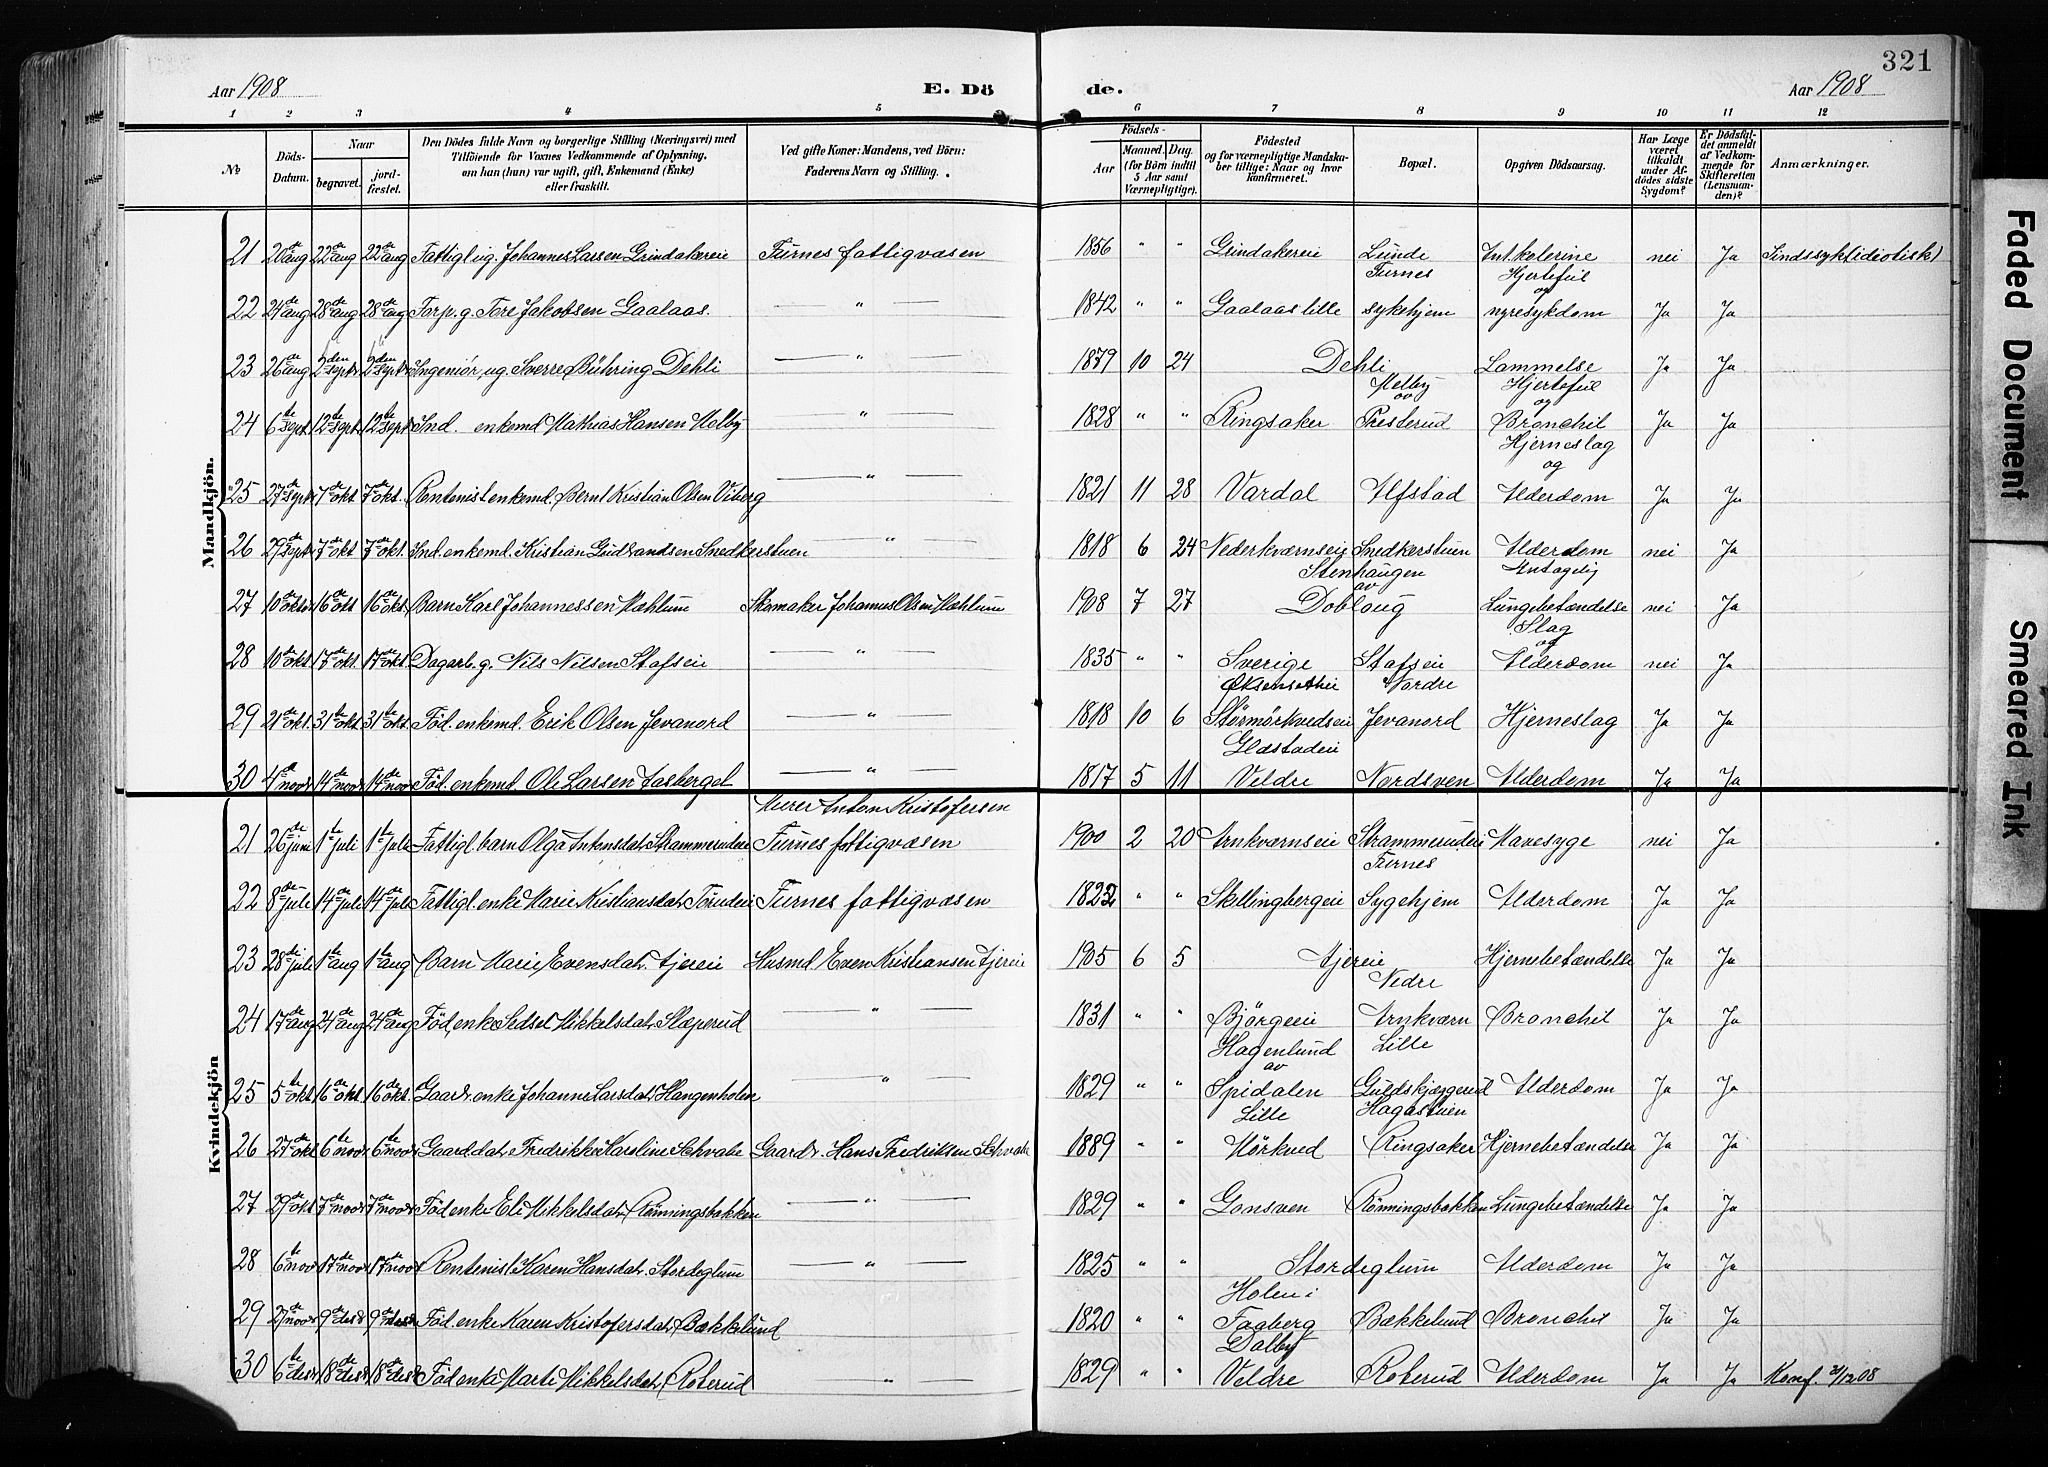 321
Aar 1908 E. Dö de. Aar 1908
1 2 3 4 5 6 7 8 9 10 11 12
No
Döds-Datum.
Naar begravet. jordfæstet.
Den Dödes fulde Navn og borgerlige Stilling (Næringsvei) med Tilföiende for Voxnes Vedkommende af Oplysning, om han (hun) var ugift, gift, Enkemand (Enke) eller fraskilt.
Ved gifte Koner: Mandens, ved Börn: Faderens Navn og Stilling.
Födsels- Aar Maaned. Dag. (for Börn indtil 5 Aar samt Værnepligtige).
Födested og for værnepligtige Mandskaber tillige: Naar og hvor konfirmeret.
Bopæl.
Opgiven Dödsaarsag.
Har Læge været tilkaldt under Afdödes sidste Sygdom?
Er Dödsfaldet anmeldt af Vedkommende for Skifteretten (Lensmanden)?
Anmærkninger.
Mandkjön.
21 20de aug 22de aug 22de aug Fattigl ug. Johannes Larsen Grindakereie Furnes fattigvæsen 1856 " " Grindakereie Lunde Furnes Int. kolerine nei Ja Sindssyk (idiotisk)
22 24de aug 28de aug 28de aug Forp. g. Tore Jakobsen Gaalaas. — " — 1842 " " Gaalaas lille sykehjem Hjertefeil og nyresykdom Ja Ja
23 26de aug 2den sept 2den sept Ingeniør, ug. Sverre Bühring Dehli — " — 1879 10 24 Dehli Lammelse Ja Ja
24 6te sept 12te sept. 12te sept Ind. enkemd Mathias Hansen Melby — " — 1828 " " Ringsaker Melby av Presterud Hjertefeil og Bronchit Ja Ja
25 27de sept 7de okt. 7de okt. Rentenist enkemd. Bernt Kristian Olsen Viberg — " — 1821 11 28 Vardal Alfstad Hjerneslag og Alderdom Ja Ja
26 29de sept 7de okt 7de okt. Ind. enkemd. Kristian Gudbrandsen Snedkerstuen — " — 1818 6 24 Nederkværnseie Snedkerstuen Alderdom nei Ja
27 10de okt 16de okt 16de okt. Barn Karl Johannessen Mæhlum Skomaker Johannes Olsen Mæhlum 1908 7 27 Stenhaugen av Dobloug Antagelig Lungebetændelse nei Ja
28 10de okt. 17de okt. 17de okt. Dagarb. g. Nils Nilsen Stafseie — " — 1835 " " Sverige Stafseie Slag og Alderdom nei Ja
29 21de okt. 31te okt. 31te okt. Föd. enkemd. Erik Olsen Jevanord — " — 1818 10 6 Størmørkvedseie Nordre Jevanord Hjerneslag Ja Ja
30 4de novr 14de novr 14de nov Föd. enkemd. Ole Larsen — " — 1817 5 11 Glæstadeie Veldre Nordsven Alderdom Ja Ja
Kvindekjön
21 26de juni 1te juli 1te juli Fattigl. barn Olga Antonsdat. Strammerudeie Murer Anton Kristofersen Furnes fattigvæsen 1900 2 20 Arnkværnseie Strammerudeie Mavesyge nei Ja
22 8de juli 14de juli 14de juli Fattigl. enke Marie Kristiansdat. Furnes fattigvæsen 1822 " " Skillingbergeie Furnes Sygehjem Alderdom Ja Ja
23 28de juli 1te aug 1te aug Barn Marie Evensdat. Tjereie Husmd. Even Kristiansen Tjereie 1905 6 5 Tjereie Hjernebetændelse Ja Ja
24 17de aug 24de aug 24de aug Föd. enke Sedsel Mikkelsdat. Slaperud — " — 1831 " " Björgeeie Nedre Arnkværn Bronchit Ja Ja
25 5te okt 16de okt. 16de okt. Gaardr. enke Johanne Larsdat. Hangenholen — " — 1829 " " Hagenlund av Spidalen Lille Guldskjæggerud Alderdom Ja Ja
26 27de okt 6te novr 6te novr Gaardrdat. Fredrikke Karoline Schvabe Gaardr. Hans Fredriksen Schvabe 1889 " " Lille Mörkved Hagastuen Ringsaker Hjernebetændelse Ja Ja
27 29de okt 7de novr 7de novr Föd enke Eli Mikkelsdat. Rönningsbakken — " — 1829 " " Gonsven Rönningsbakken Lungebetændelse Ja Ja
28 6te nov 17de novr 17de novr Rentenist Karen Hansdat. Stordeglum — " — 1825 " " Stordeglum Alderdom Ja Ja
29 27de novr 9de desr 9de desr Föd. enke Karen Kristofersdat. Bækkelund — " — 1820 " " Holen i Fagberg Bækkelund Bronchit Ja Ja
30 6te desr 18de desr 18de desr Föd enke Marte Mikkelsdat. Roterud — " — 1829 " " Dalby Veldre Roterud Alderdom Ja Ja Konf. 31/12 08
Faded Document
Smeared Ink